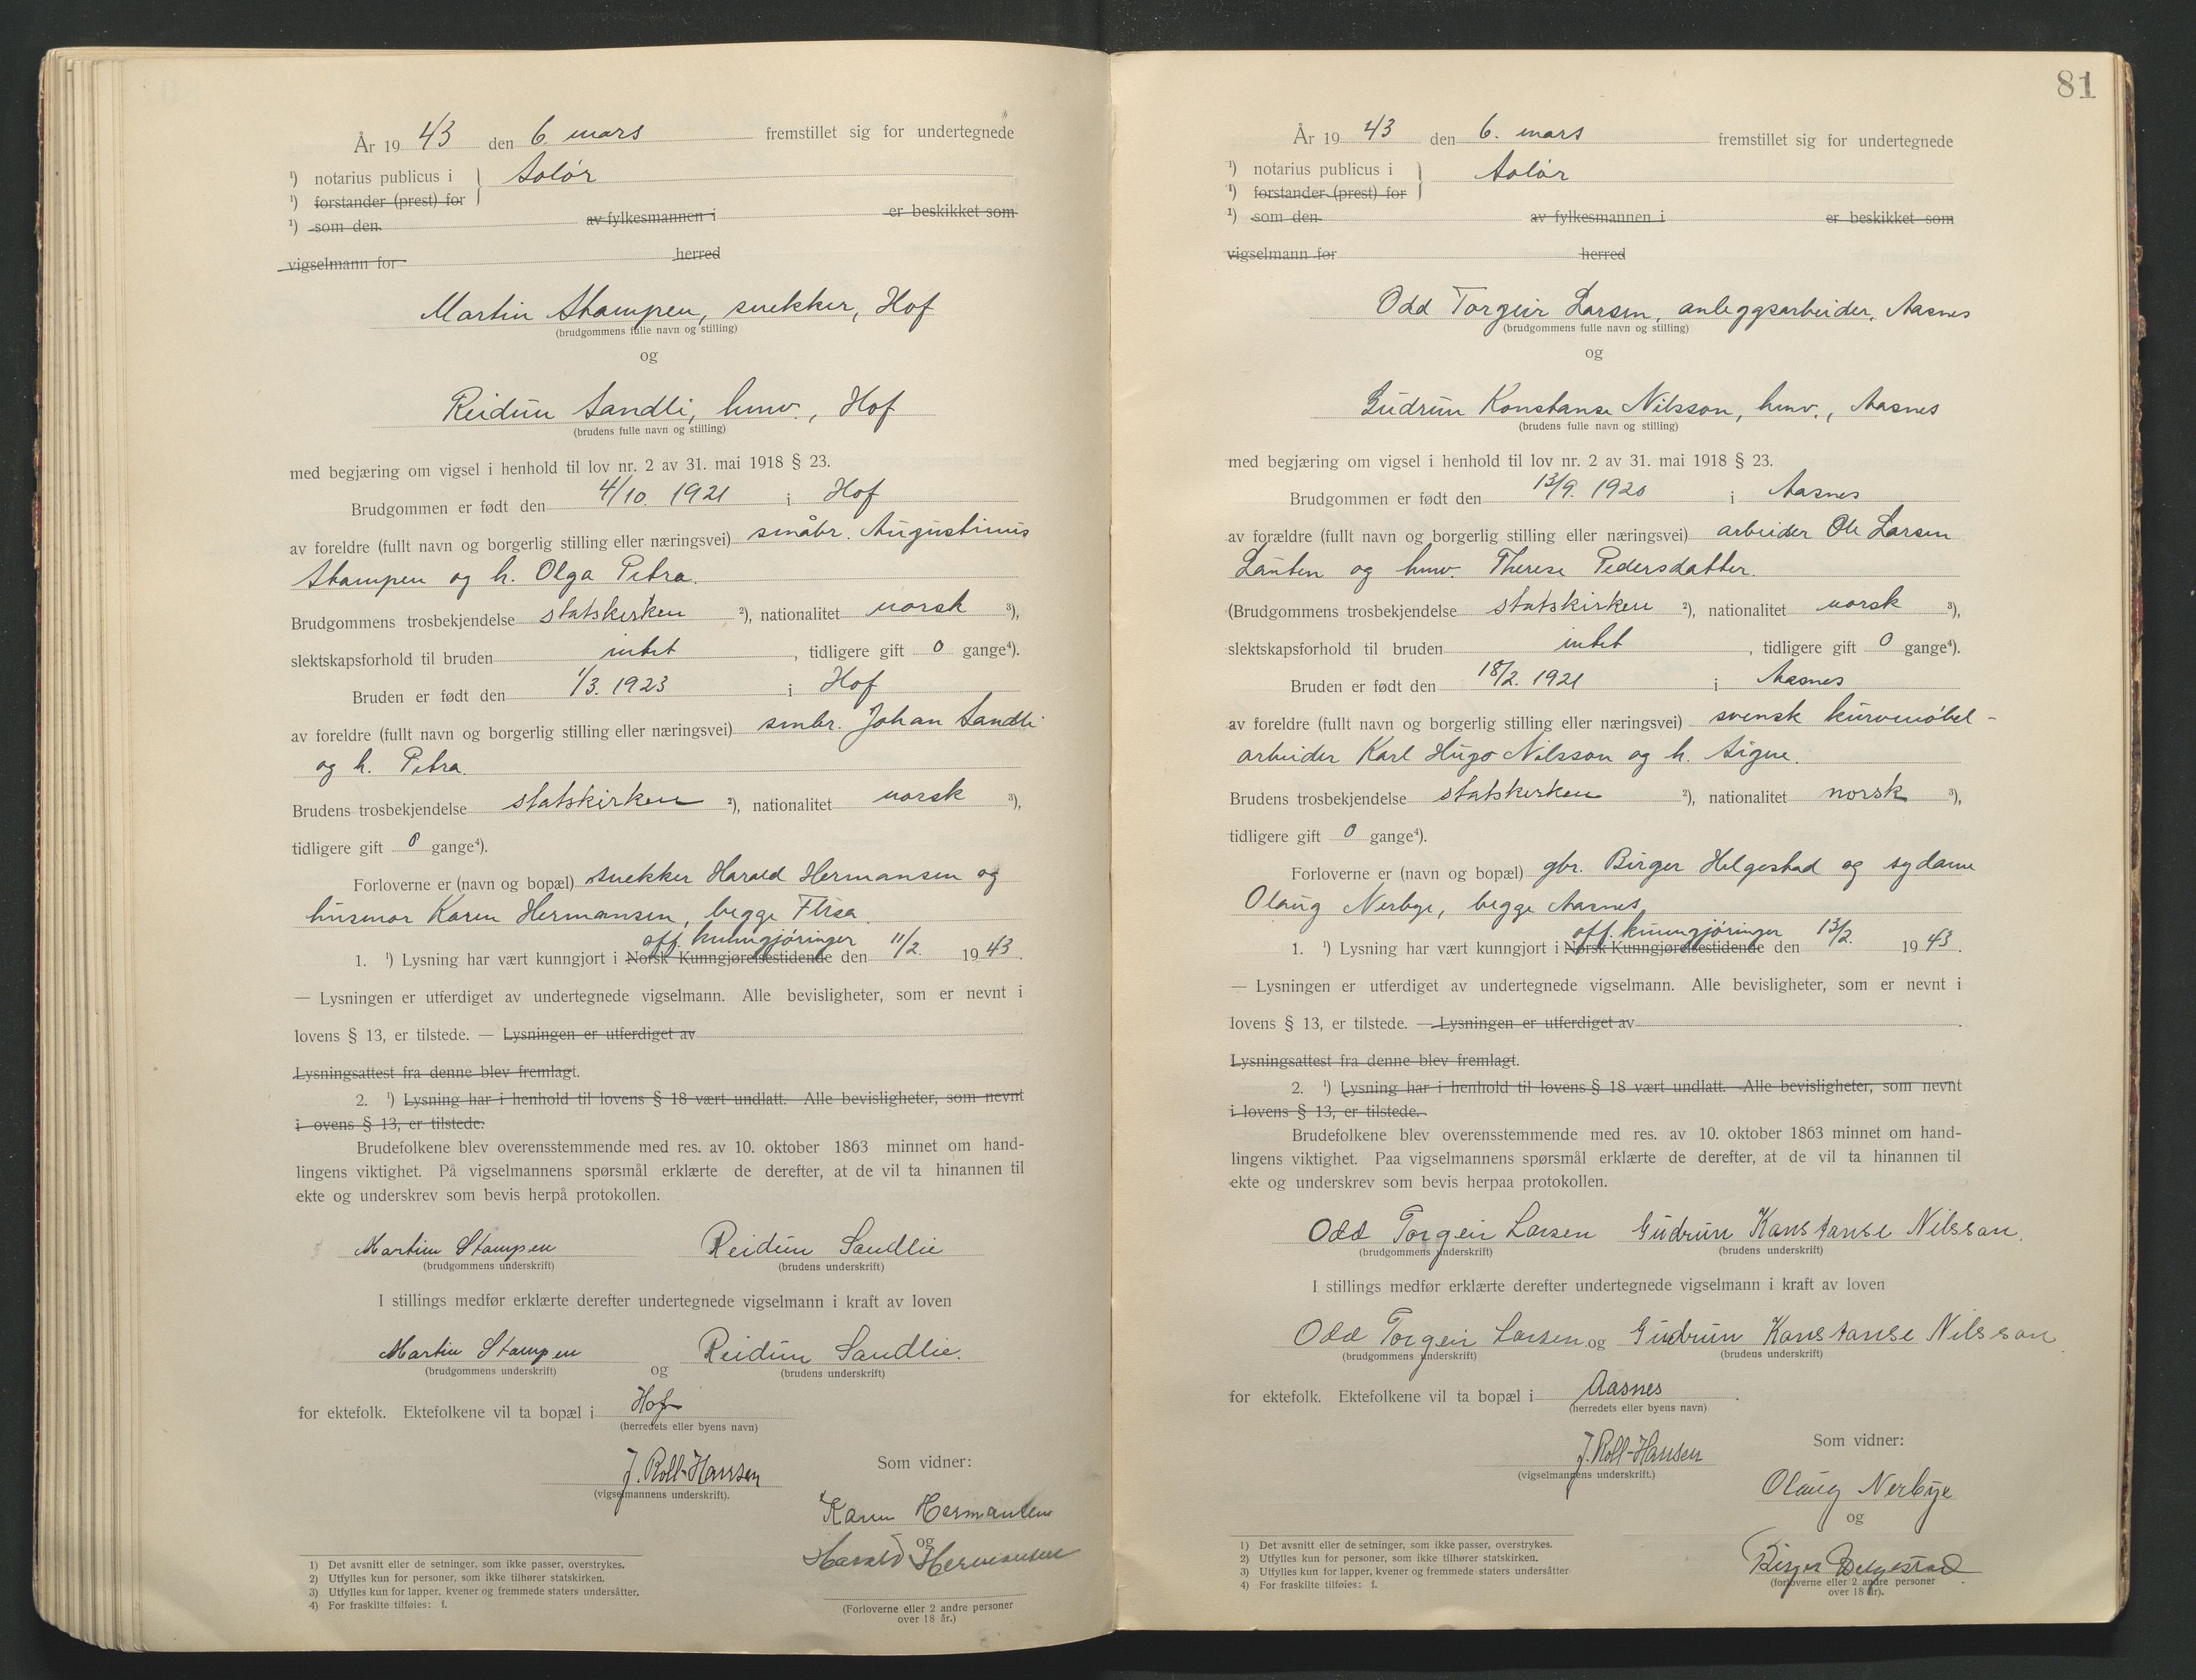 År 1943 den 6. mars fremstillet sig for undertegnede
¹) notarius publicus i } Solør
¹) forstander (prest) for
¹) som den av fylkesmannen i er beskikket som
vigselmann for herred
Martin Stampen, snekker, Hof
(brudgommens fulle navn og stilling)
og
Reidun Sandli, hmv., Hof
(brudens fulle navn og stilling)
med begjæring om vigsel i henhold til lov nr. 2 av 31. mai 1918 § 23.
Brudgommen er født den 4/10. 1921 i Hof
av foreldre (fullt navn og borgerlig stilling eller næringsvei) småbr. Augustinus
Stampen og h. Olga Petra.
Brudgommens trosbekjendelse statskirken ²), nationalitet norsk ³),
slektskapsforhold til bruden intet, tidligere gift 0 gange⁴).
Bruden er født den 1/3. 1923 i Hof
av foreldre (fullt navn og borgerlig stilling eller næringsvei) smbr. Johan Sandli
og h. Petra.
Brudens trosbekjendelse statskirken ²), nationalitet norsk ³),
tidligere gift 0 gange⁴).
Forloverne er (navn og bopæl) snekker Harald Hermansen og
husmor Karen Hermansen, begge Flisa.
off. kunngjøringer
1. ¹) Lysning har vært kunngjort i Norsk Kunngjørelsestidende den 11/2. 1943.
— Lysningen er utferdiget av undertegnede vigselmann. Alle bevisligheter, som er nevnt i
lovens § 13, er tilstede. — Lysningen er utferdiget av
Lysningsattest fra denne blev fremlagt.
2. ¹) Lysning har i henhold til lovens § 18 vært undlatt. Alle bevisligheter, som nevnt
i ovens § 13, er tilstede.
Brudefolkene blev overensstemmende med res. av 10. oktober 1863 minnet om hand-
lingens viktighet. På vigselmannens spørsmål erklærte de derefter, at de vil ta hinannen til
ekte og underskrev som bevis herpå protokollen.
Martin Stampen Reidun Sandlie
(brudgommens underskrift) (brudens underskrift)
I stillings medfør erklærte derefter undertegnede vigselmann i kraft av loven
Martin Stampen og Reidun Sandlie.
(brudgommens underskrift) (brudens underskrift)
for ektefolk. Ektefolkene vil ta bopæl i Hof
(herredets eller byens navn)
J. Roll-Hansen
(vigselmannens underskrift).
Som vidner:
Karen Hermansen
og
Harald Hermansen
(Forloverne eller 2 andre personer
over 18 år.)
1) Det avsnitt eller de setninger, som ikke passer, overstrykes.
2) Utfylles kun for personer, som ikke tilhører statskirken.
3) Utfylles kun for lapper, kvener og fremmede staters undersåtter.
4) For fraskilte tilføies: f.
81
År 1943 den 6. mars fremstillet sig for undertegnede
¹) notarius publicus i } Solør
¹) forstander (prest) for
¹) som den av fylkesmannen i er beskikket som
vigselmann for herred
Odd Torgeir Larsen, anleggsarbeider, Aasnes
(brudgommens fulle navn og stilling)
og
Gudrun Konstanse Nilsson, hmv., Aasnes
(brudens fulle navn og stilling)
med begjæring om vigsel i henhold til lov nr. 2 av 31. mai 1918 § 23.
Brudgommen er født den 13/9. 1920 i Aasnes
av forældre (fullt navn og borgerlig stilling eller næringsvei) arbeider Ole Larsen
Lauten og hmv. Therese Pedersdatter.
(Brudgommens trosbekjendelse statskirken ²), nationalitet norsk ³),
slektskapsforhold til bruden intet, tidligere gift 0 gange⁴).
Bruden er født den 18/2. 1921 i Aasnes
av foreldre (fullt navn og borgerlig stilling eller næringsvei) svensk kurvmøbel-
arbeider Karl Hugo Nilsson og h. Signe.
Brudens trosbekjendelse statskirken ²), nationalitet norsk ³),
tidligere gift 0 gange⁴).
Forloverne er (navn og bopæl) gbr. Birger Helgestad og sydame
Olaug Nerbye, begge Aasnes.
off. kunngjøringer
1. ¹) Lysning har vært kunngjort i Norsk Kunngjørelsestidende den 13/2. 1943.
— Lysningen er utferdiget av undertegnede vigselmann. Alle bevisligheter, som er nevnt i
lovens § 13, er tilstede. — Lysningen er utferdiget av
Lysningsattest fra denne blev fremlagt.
2. ¹) Lysning har i henhold til lovens § 18 vært undlatt. Alle bevisligheter, som nevnt
i lovens § 13, er tilstede.
Brudefolkene blev overensstemmende med res. av 10. oktober 1863 minnet om hand-
lingens viktighet. Paa vigselmannens spørsmål erklærte de derefter, at de vil ta hinannen til
ekte og underskrev som bevis herpaa protokollen.
Odd Torgeir Larsen Gudrun Konstanse Nilsson.
(brudgommens underskrift) (brudens underskrift)
I stillings medfør erklærte derefter undertegnede vigselmann i kraft av loven
Odd Torgeir Larsen og Gudrun Konstanse Nilsson
(brudgommens underskrift) (brudens underskrift)
for ektefolk. Ektefolkene vil ta bopæl i Aasnes.
(herredets eller byens navn)
J. Roll-Hansen
(vigselmannens underskrift.)
Som vidner:
Olaug Nerbye
og
Birger Helgestad
(forloverne eller 2 andre personer
over 18 år).
1) Det avsnitt eller de setninger, som ikke passer, overstrykes.
2) Utfylles kun for personer, som ikke tilhører statskirken.
3) Utfylles kun for lapper, kvener og fremmede staters undersåtter
4) For fraskilte tilføies: f.